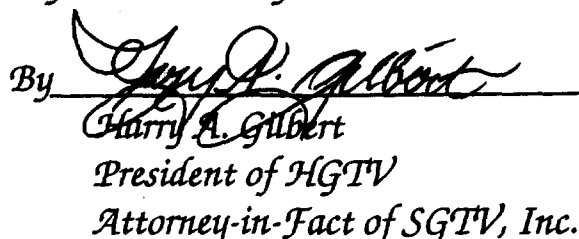 By A. Gilbert
Harry A. Gilbert
President of HGTV
Attorney-in-Fact of SGTV, Inc.